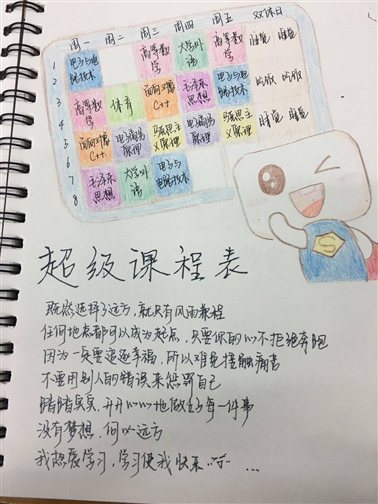 周一 周二 周三 周四 周五 双休日
1 2 3 4 5 6 7 8
电子与电路技术 高等数学 大学外语 高等数学 睡觉 睡觉
高等数学 体育 面向对象C++ 毛泽东思想 电子与电路技术 吃饭 吃饭
面向对象C++ 电磁场原理 马克思主义原理 毛泽东思想 马克思主义原理 睡觉 睡觉
毛泽东思想 大学外语 电子与电路技术
超级课程表
既然选择了远方，就只有风雨兼程
任何地点都可以成为起点，只要你的心不拒绝奔跑
因为一定要追逐幸福，所以难免接触痛苦
不要用别人的错误来惩罚自己
踏踏实实，开开心心地做好每一件事
没有梦想，何以远方
我热爱学习，学习使我快乐 ...